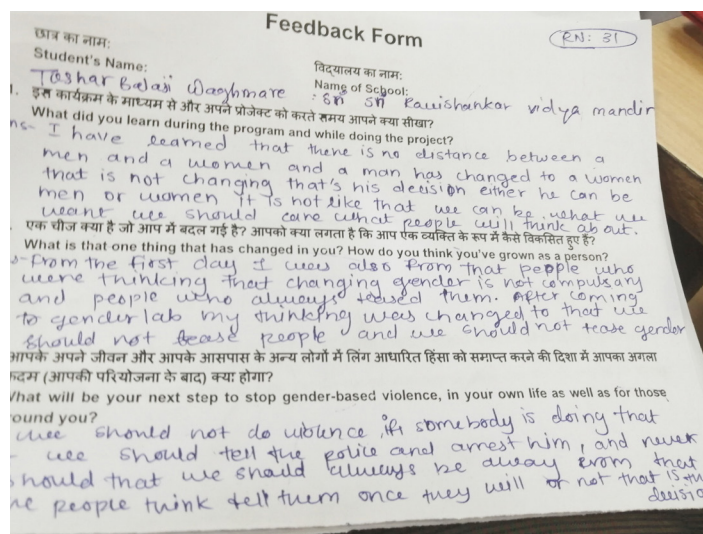 Feedback Form
RN: 31
छात्र का नाम:
Student's Name:
विद्यालय का नाम:
Name of School:
Toshar Balaji Waghmare
: Sri Sri Ravishankar vidya mandir
इस कार्यक्रम के माध्यम से और अपने प्रोजेक्ट को करते समय आपने क्या सीखा?
What did you learn during the program and while doing the project?
ns- I have learned that there is no distance between a
men and a women and a man has changed to a women
that is not changing that's his decision either he can be
men or women it is not like that we can be what we
want we should care what people will think about.
एक चीज क्या है जो आप में बदल गई है? आपको क्या लगता है कि आप एक व्यक्ति के रूप में कैसे विकसित हुए हैं?
What is that one thing that has changed in you? How do you think you've grown as a person?
s- From the first day I was also from that people who
were thinking that changing gender is not compulsary
and people who always teased them. After coming
to gender lab my thinking was changed to that we
should not tease people and we should not tease gender
आपके अपने जीवन और आपके आसपास के अन्य लोगों में लिंग आधारित हिंसा को समाप्त करने की दिशा में आपका अगला
कदम (आपकी परियोजना के बाद) क्या होगा?
hat will be your next step to stop gender-based violence, in your own life as well as for those
ound you?
we should not do violence, if somebody is doing that
- we should tell the police and arrest him, and never
hould that we should always be away from that
he people think tell them once they will or not that is th
decisio